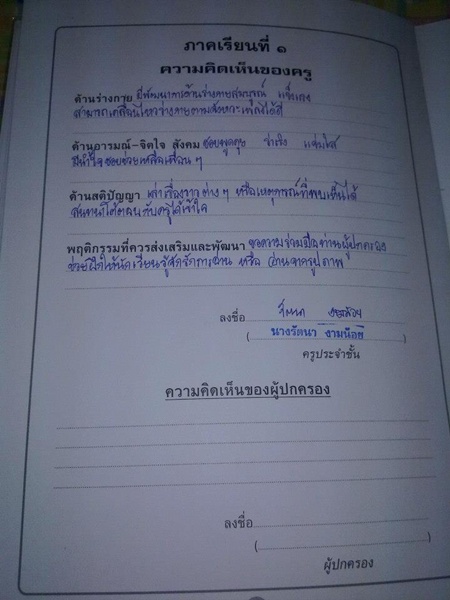 ภาคเรียนที่ ๑
ความคิดเห็นของครู
ด้านร่างกาย มีพัฒนาการด้านร่างกายสมบูรณ์ แข็งแรง
สามารถเคลื่อนไหวร่างกายตามจังหวะเพลงได้ดี
ด้านอารมณ์-จิตใจ สังคม ชอบพูดคุย ร่าเริง แจ่มใส
มีน้ำใจชอบช่วยเหลือเพื่อน ๆ
ด้านสติปัญญา เล่าเรื่องราวต่าง ๆ หรือเหตุการณ์ที่พบเห็นได้
สนทนาโต้ตอบกับครูได้เข้าใจ
พฤติกรรมที่ควรส่งเสริมและพัฒนา ขอความร่วมมือท่านผู้ปกครอง
ช่วยฝึกให้นักเรียนรู้จักรักการอ่าน หรือ อ่านจากรูปภาพ
ลงชื่อ
(นางรัตนา งามน้อย)
ครูประจำชั้น
ความคิดเห็นของผู้ปกครอง
ลงชื่อ
( )
ผู้ปกครอง